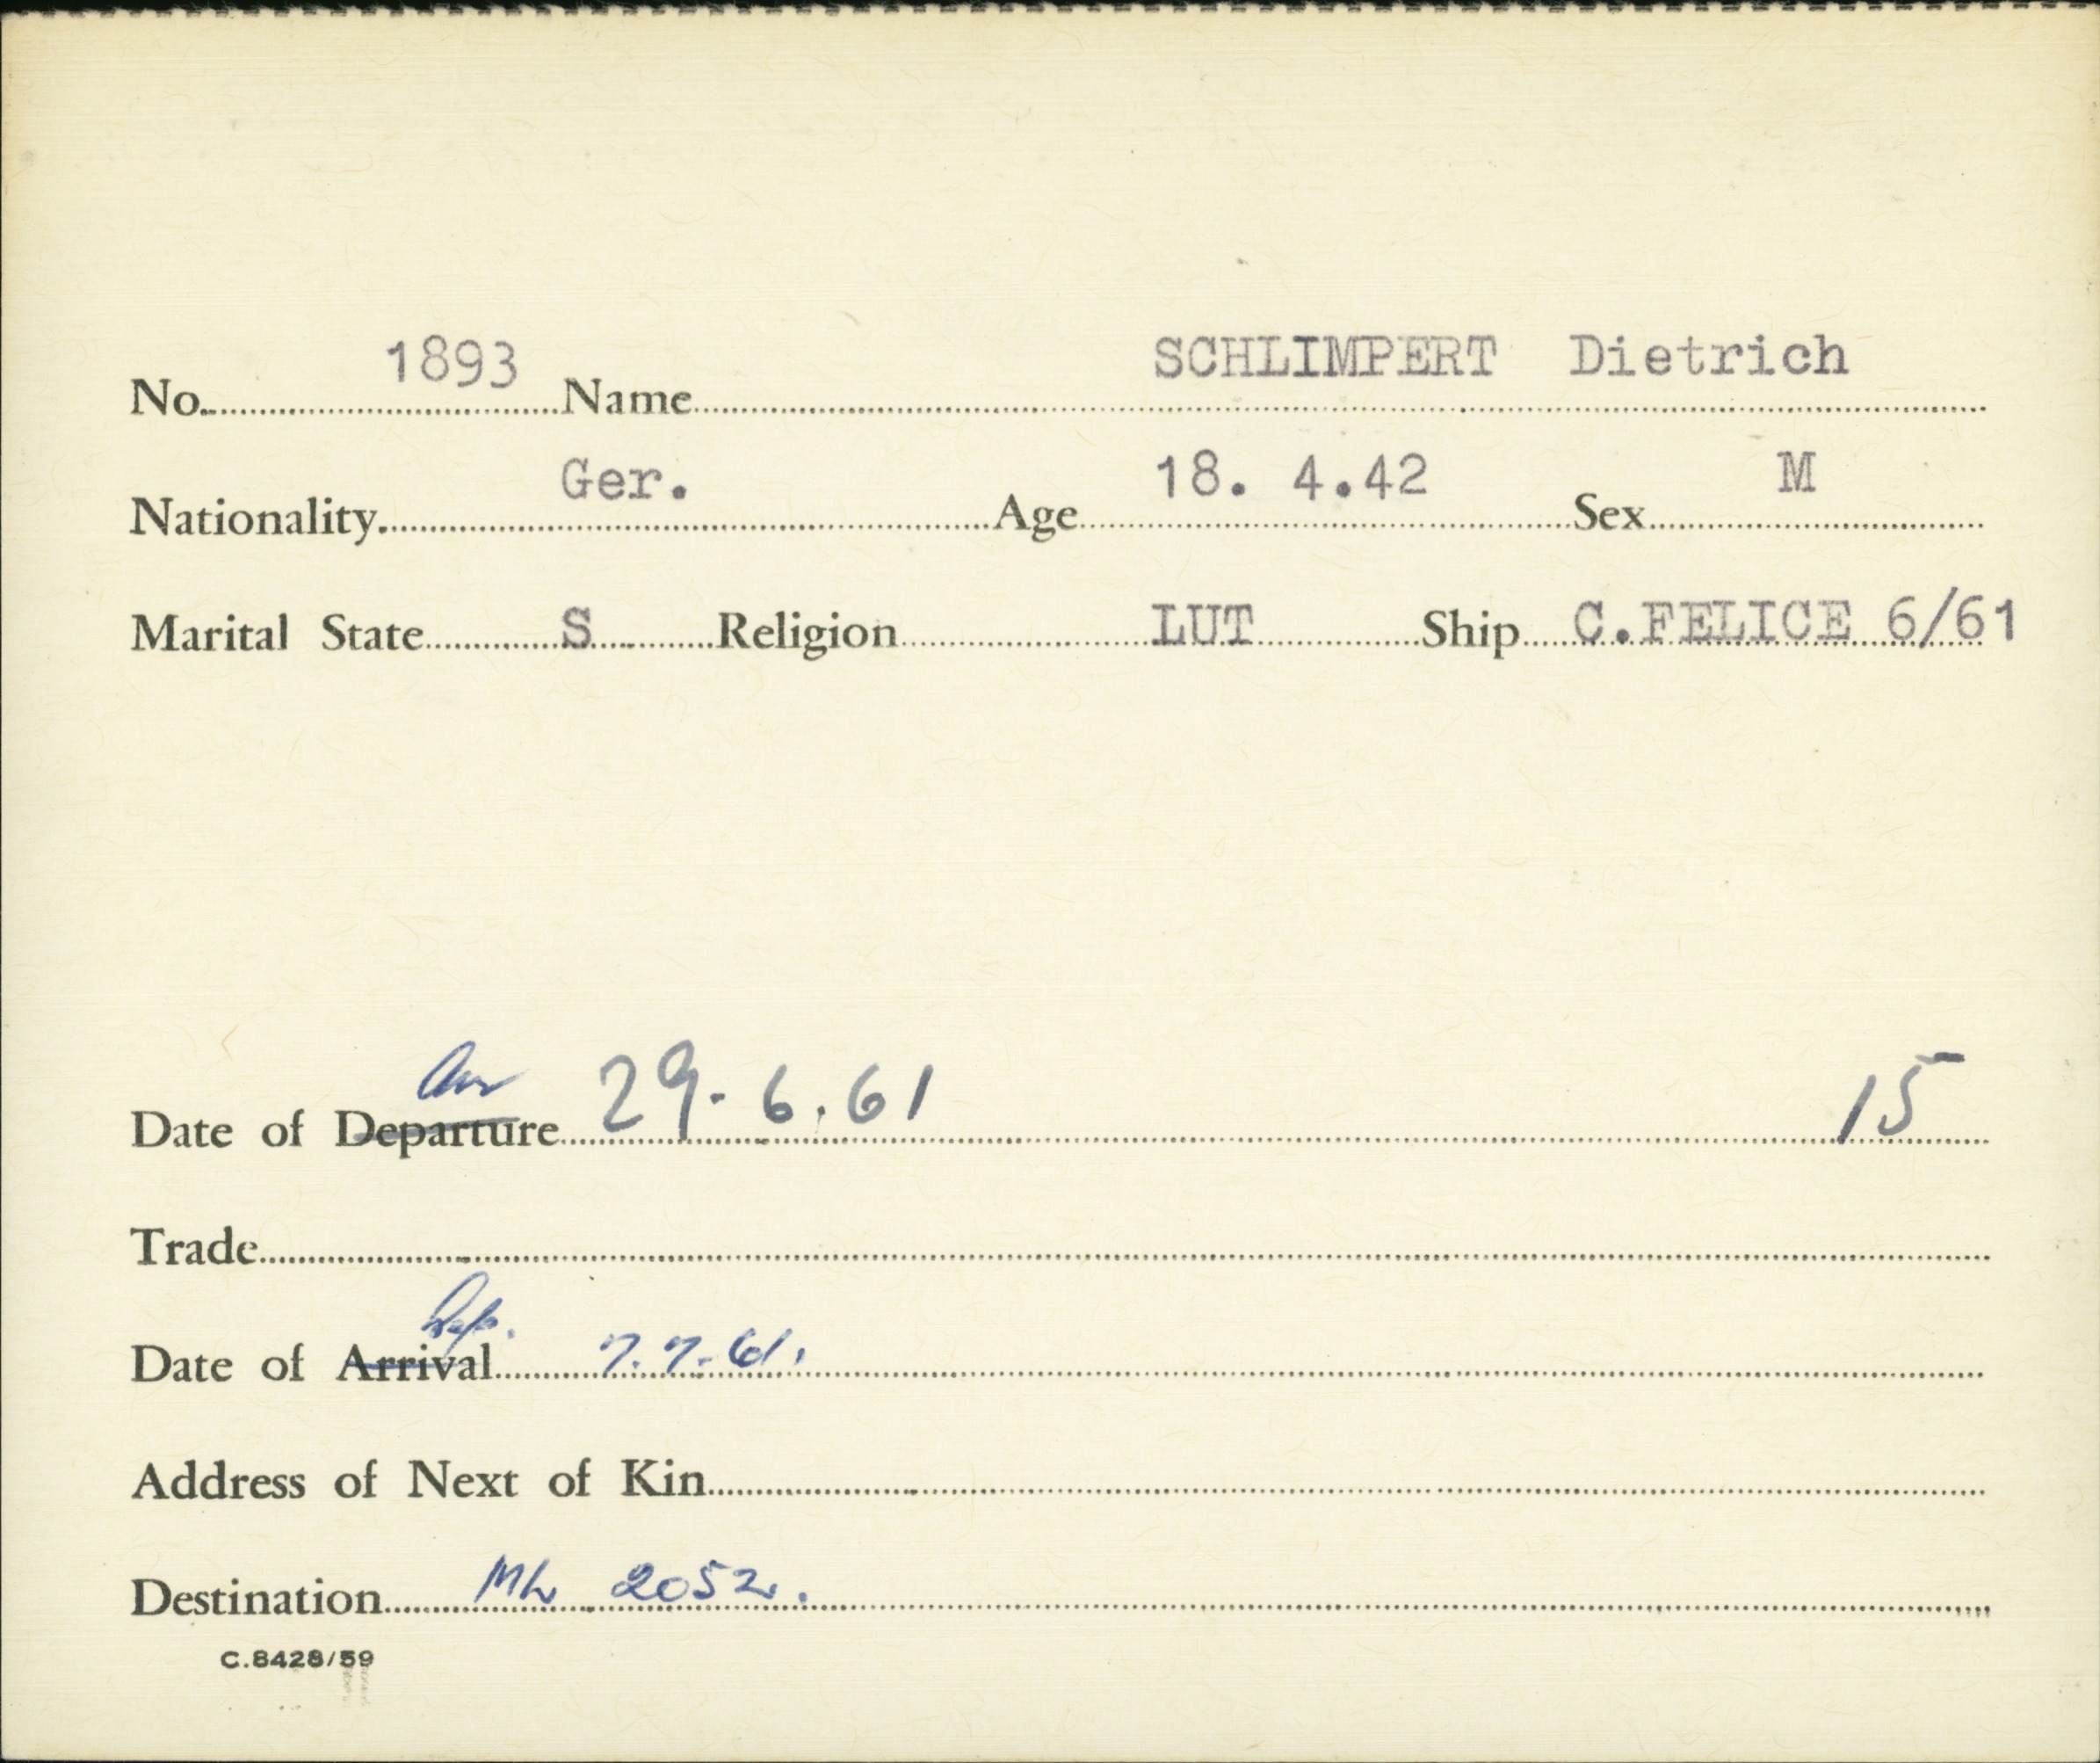 No. 1893 Name SCHLIMPERT Dietrich
Nationality. Ger. Age 18. 4.42 Sex M
Marital State S Religion LUT Ship C.FELICE 6/61
Arr
Date of Departure 29.6.61 15
Trade
Dep.
Date of Arrival 7.7.61.
Address of Next of Kin
Destination 2052.
C.8428/59